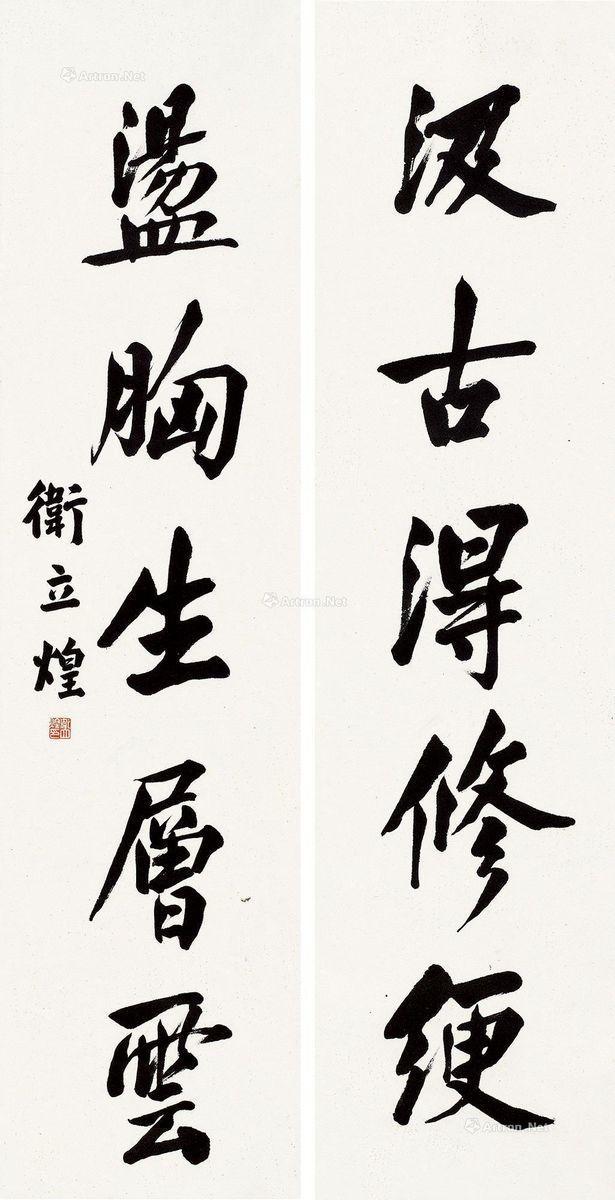 汲古得修綆
盪胸生層雲
衛立煌
Artron.Net
Artron.Net
Artron.Net